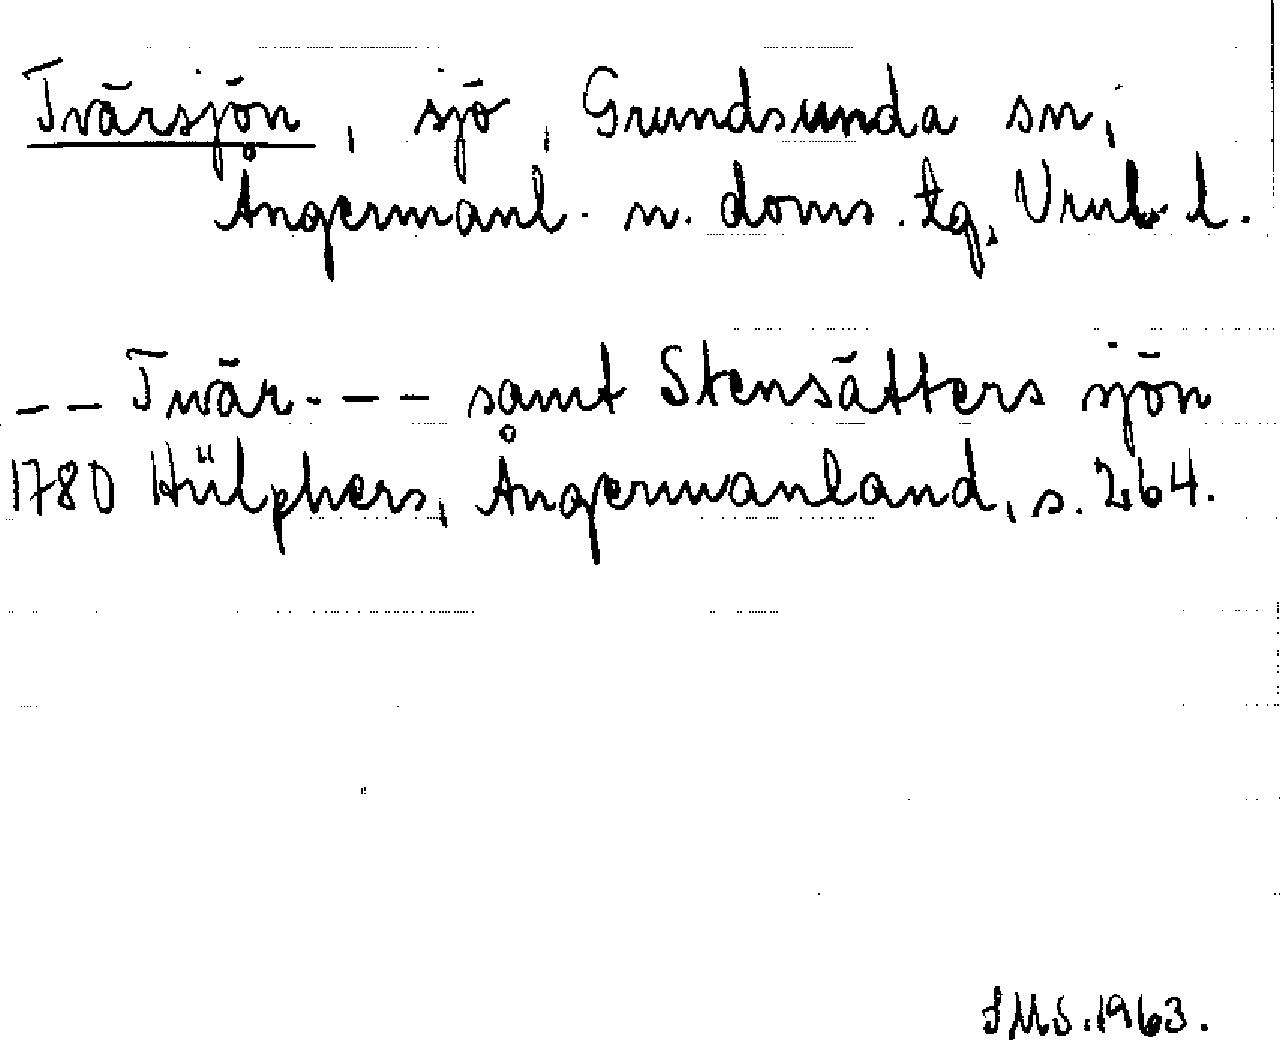 Tvärsjön, sjö, Grundsunda sn,
Ångermanl. n. doms. tg, Vrnb l.
-- Twär--- samt Stensätters sjön
1780 Hülphers, Ångermanland, s. 264.
IMS. 1963.